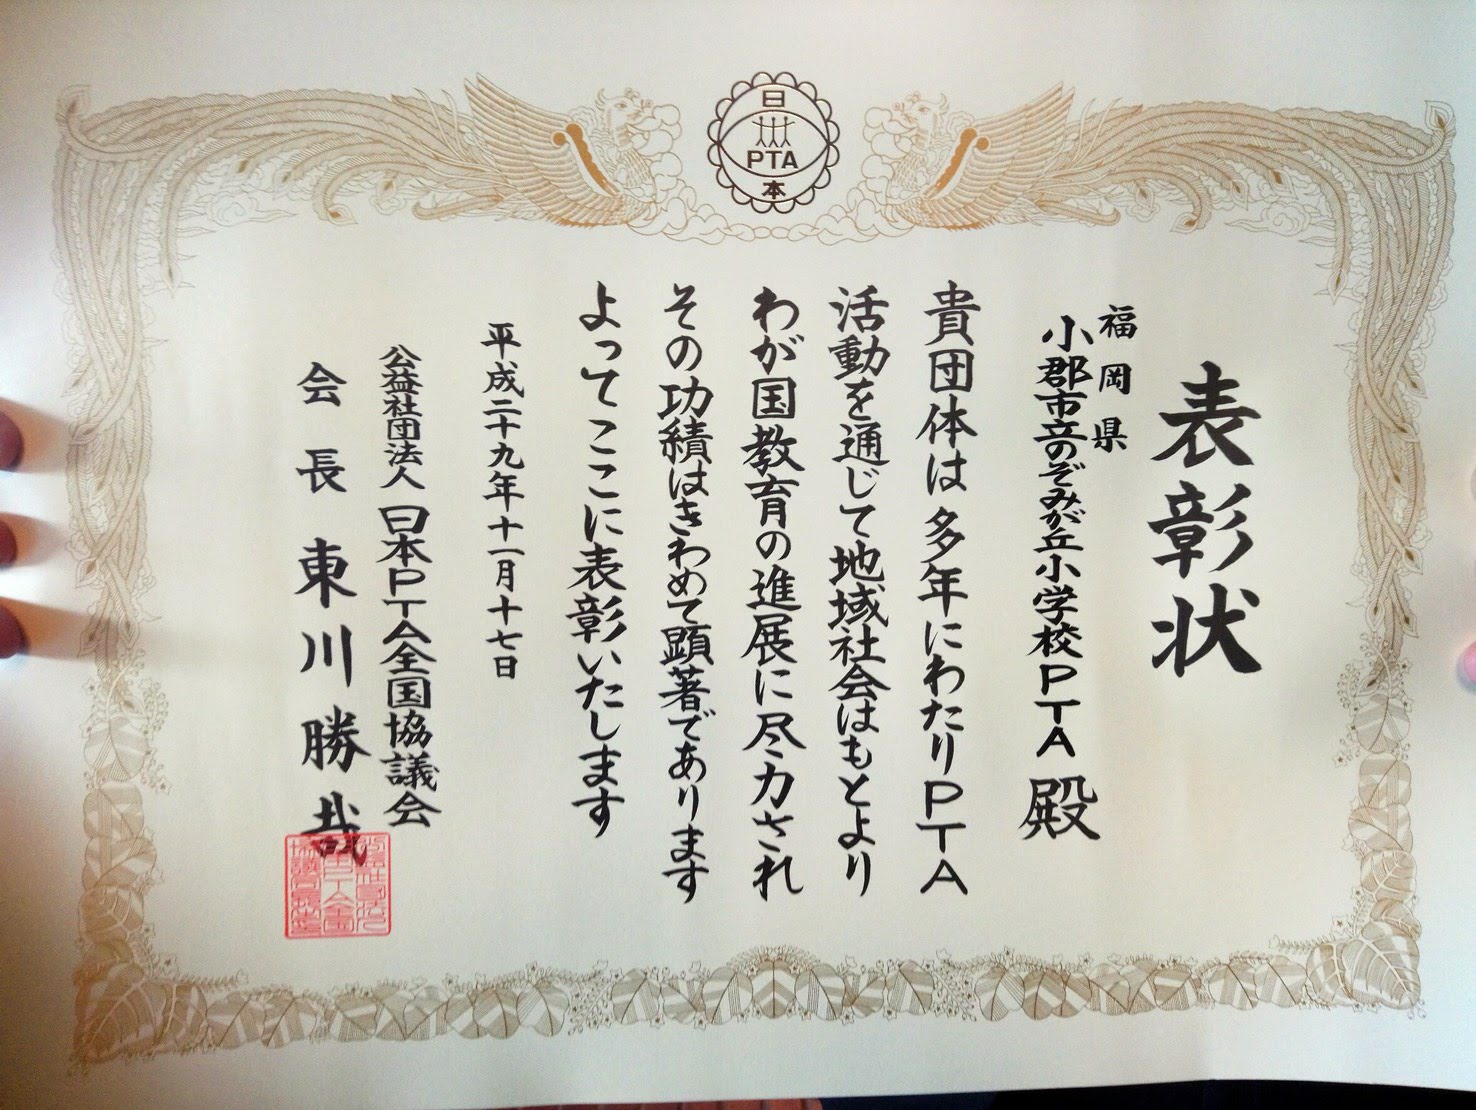 日
PTA
本
表彰状
福岡県
小郡市立のぞみが丘小学校PTA 殿
貴団体は多年にわたりPTA
活動を通じて地域社会はもとより
わが国教育の進展に尽力され
その功績はきわめて顕著であります
よってここに表彰いたします
平成二十九年十一月十七日
公益社団法人 日本PTA全国協議会
会長 東川勝哉